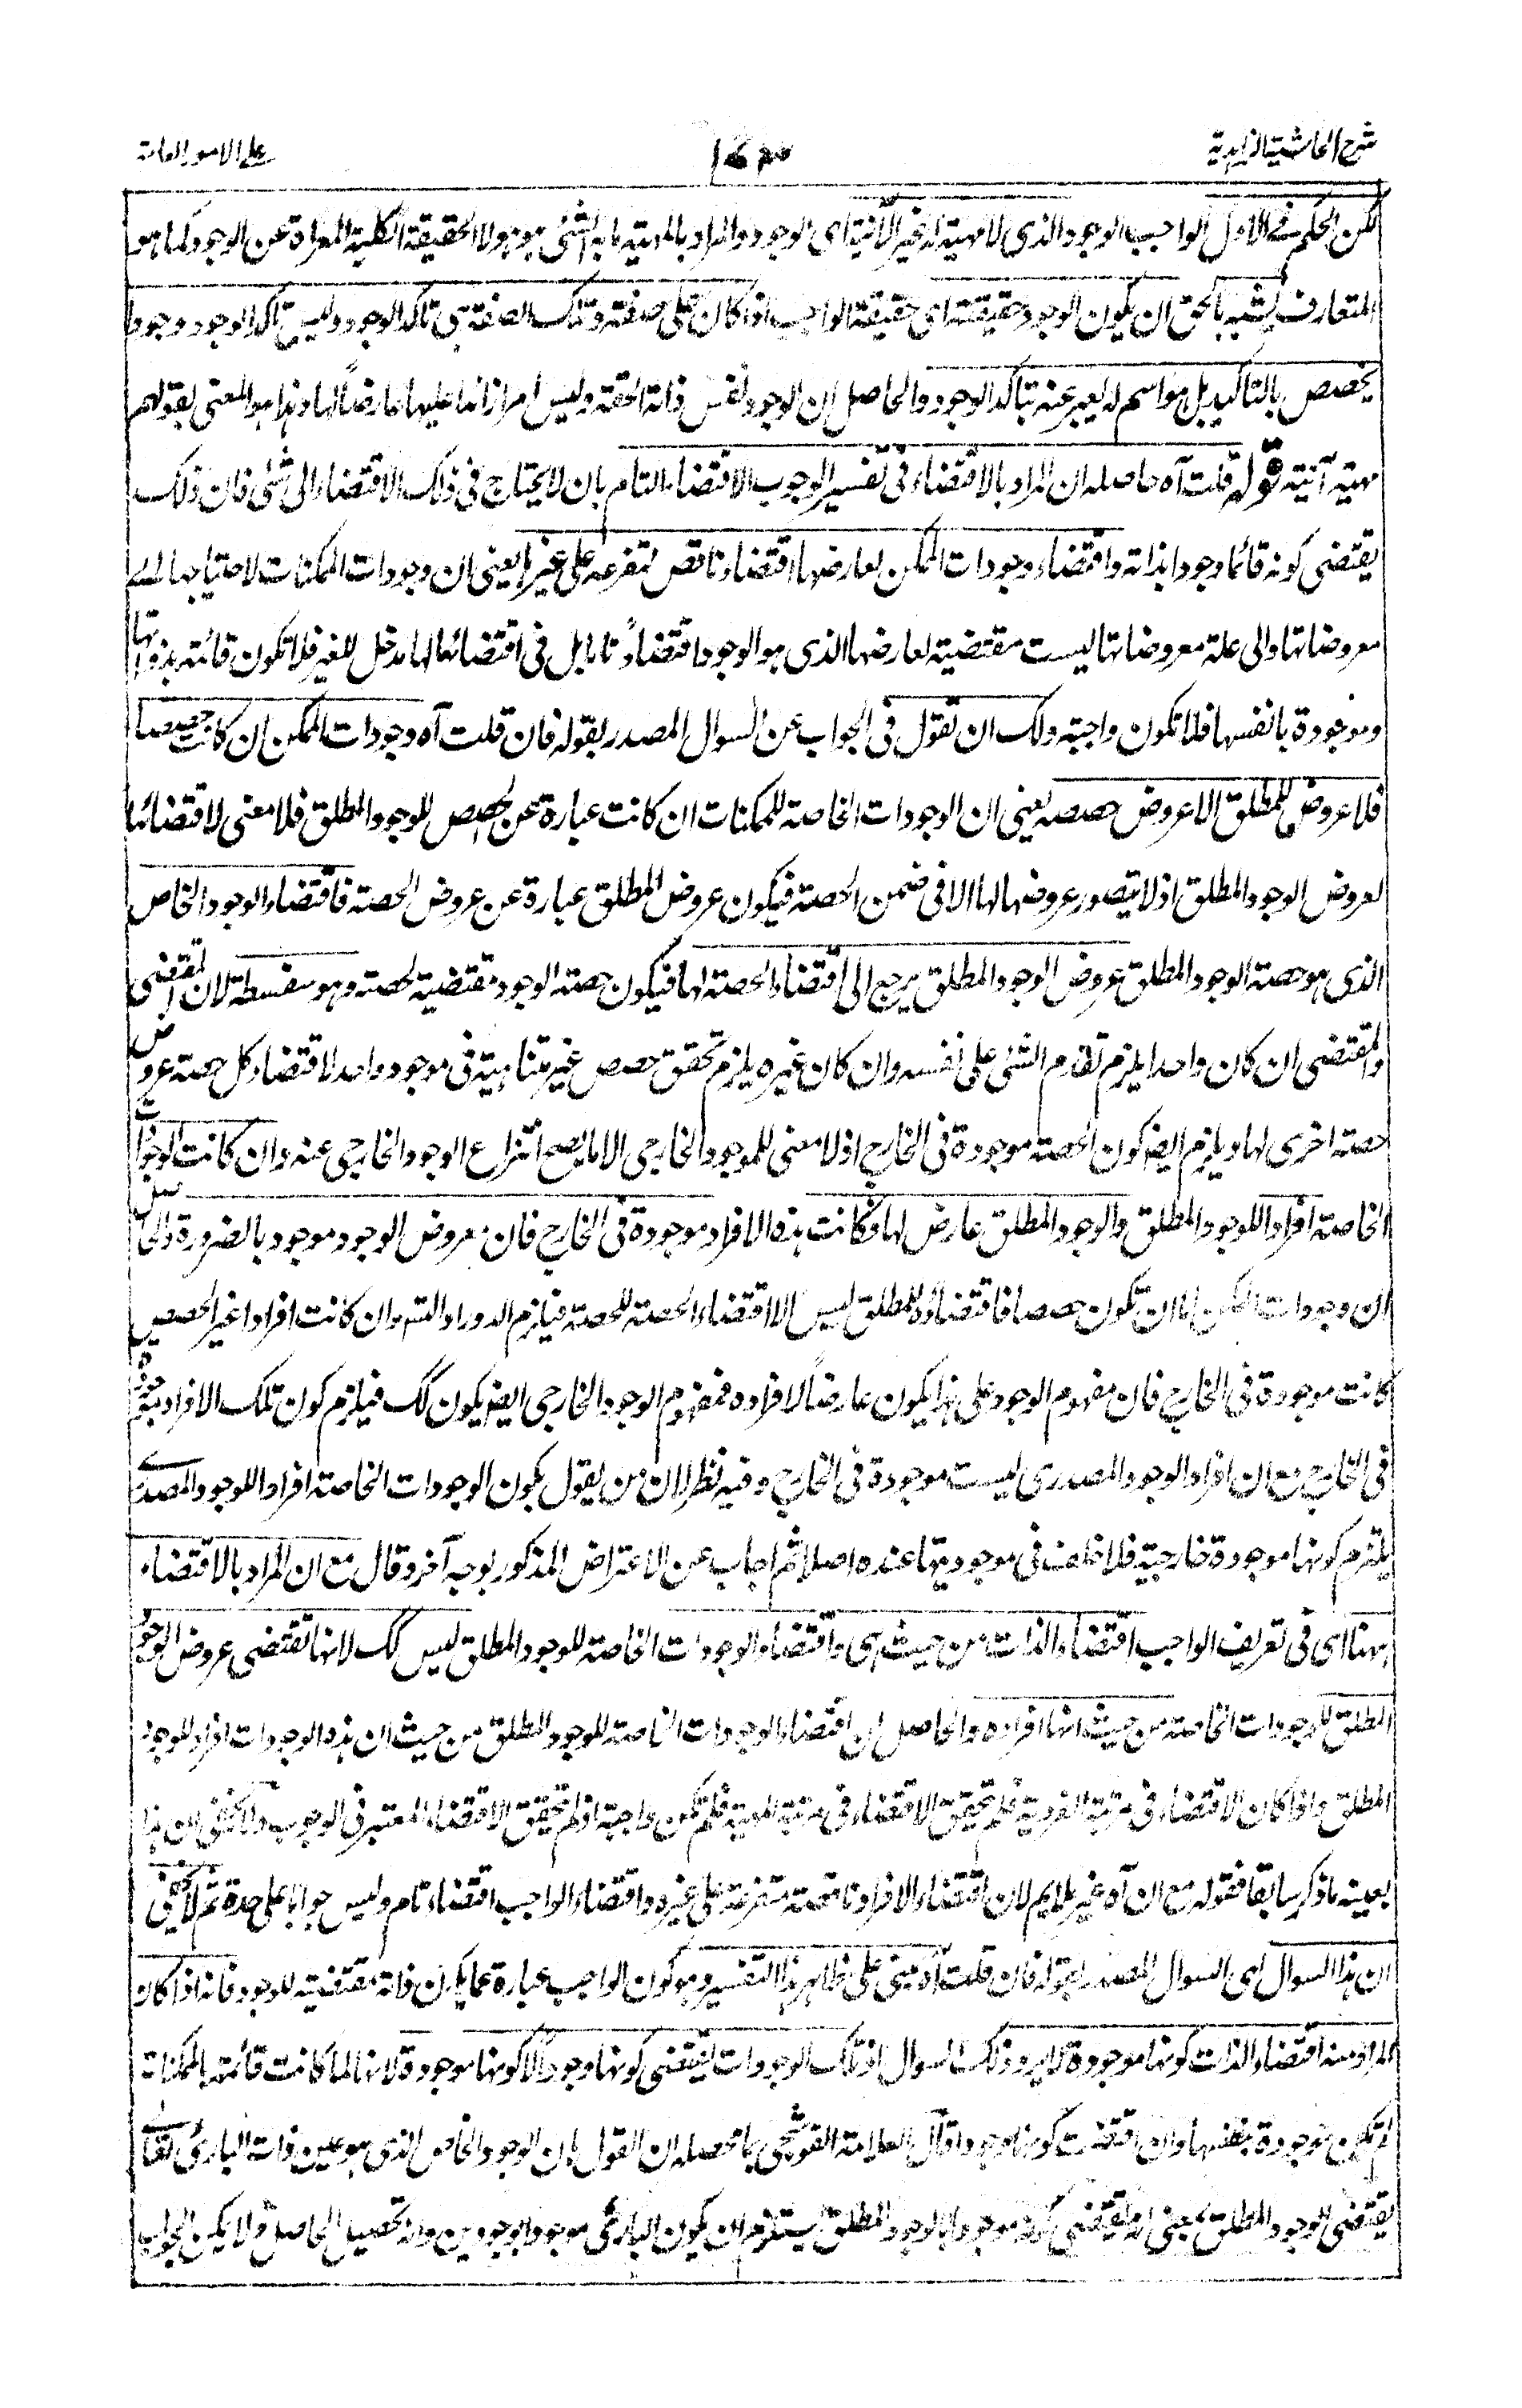 شرح الحاشية الزاهدية
على الامور العامة
لكن الحكم فى الاول الواجب الوجود الذى لا مهية له غير الآنية اى الوجود والمراد بالمهية ما به الشئى هو هو لا الحقيقة الكلية المعراة عن الوجود كما هو
المتعارف يشبه بالحق ان يكون الوجود حقيقته اى حقيقة الواجب اذا كان على صفة وتلك الصفة هى تاكد الوجود وليس تاكد الوجود وجودا
يخصص بالتاكيد بل هو اسم له يعبر عنه بتاكد الوجود والحاصل ان الوجود نفس ذاته الحقة وليس امرا زائدا عليها عارضاً لها وهذا هو المعنى بقولهم
مهيته آنيته قوله قلت آه حاصله ان المراد بالاقتضاء فى تفسير الوجوب الاقتضاء التام بان لا يحتاج فى ذلك الاقتضاء الى شئى فان ذلك
يقتضى كونه قائما وجودا بذاته واقتضاء وجودات الممكن لعارضها اقتضاء ناقص لتفرعه على غيره يعنى ان وجودات الممكنات لاحتياجها الے
معروضاتها والى علة معروضاتها ليست مقتضية لعارضها الذى هو الوجود اقتضاءً تاما بل فى اقتضائها لها مدخل للغير فلا تكون قائمة بذواتها
وموجودة بانفسها فلا تكون واجبة ولك ان تقول فى الجواب عن السوال المصدر بقوله فان قلت آه وجودات الممكن ان كانت حصصا
فلا عروض للمطلق الا عروض حصصه يعنى ان الوجودات الخاصة للممكنات ان كانت عبارة عن الحصص للوجود المطلق فلا معنى لاقتضائها
لعروض الوجود المطلق اذ لا يتصور عروضها لها الا فى ضمن الحصة فيكون عروض المطلق عبارة عن عروض الحصة فاقتضاء الوجود الخاص
الذى هو حصة الوجود المطلق عروض الوجود المطلق يرجع الى اقتضاء الحصة لها فيكون حصة الوجود مقتضية لحصته وهو سفسطة لان المقتضى
والمقتضى ان كان واحدا يلزم تقدم الشئى على نفسه وان كان غيره يلزم تحقق حصص غير متناهية فى موجود واحد لاقتضاء كل حصة عروض
حصة اخرى لها ويلزم ايضا كون الحصة موجودة فى الخارج اذ لا معنى للموجود الخارجى الا ما يصح انتزاع الوجود الخارجى عنه وان كانت الوجودات
الخاصة افرادا للوجود المطلق والوجود المطلق عارض لها فكانت هذه الافراد موجودة فى الخارج فان معروض الوجود موجود بالضرورة والحاصل
ان وجودات الممكن اما ان تكون حصصا فاقتضاؤها للمطلق ليس الا اقتضاء الحصة للحصة فيلزم الدور او التسه وان كانت افرادا غير الحصص
كانت موجودة فى الخارج فان مفهوم الوجود على هذا يكون عارضاً لافراده فمفهوم الوجود الخارجى ايضا يكون كك فيلزم كون تلك الافراد موجودة
فى الخارج مع ان افراد الوجود المصدرى ليست موجودة فى الخارج وفيه نظر لان من يقول بكون الوجودات الخاصة افرادا للوجود المصدرے
يلتزم كونها موجودة خارجية فلا خلف فى موجوديتها عنده اصلا ثم اجاب عن الاعتراض المذكور بوجه آخر وقال مع ان المراد بالاقتضاء
ههنا اى فى تعريف الواجب اقتضاء الذات من حيث هى واقتضاء الوجودات الخاصة للوجود المطلق ليس كك لانها تقتضى عروض الوجود
المطلق للوجودات الخاصة من حيث انها افراده والحاصل ان اقتضاء الوجودات الخاصة للوجود المطلق من حيث ان هذه الوجودات افراد للوجود
المطلق واذا كان الاقتضاء فى مرتبة الفردية فلم يتحقق الاقتضاء فى مرتبة المهية فلم تكن واجبة اذ لم يتحقق الاقتضاء المعتبر فى الوجوب ولا يخفى ان هذا
بعينه ما ذكر سابقا فقوله مع ان آه غير ملايم لان اقتضاء الافراد ناقصة متفرعة على غيره واقتضاء الواجب اقتضاء تام وليس جوابا على حدة ثم لا يخفى
ان هذا السوال اى السوال المصدر بقوله فان قلت آه مبنى على ظاهر هذا التفسير وهو كون الواجب عبارة عما يكون ذاته مقتضية للوجود فانه اذا كان
المراد منه اقتضاء الذات كونها موجودة لا يرد ذلك السوال اذ تلك الوجودات تقتضى كونها وجودا لا كونها موجودة لانها لما كانت قائمة بالممكنات
لم تكن موجودة بنفسها وان اقتضت كونها وجودا قال العلامة القوشجى ما محصله ان القول بان الوجود الخاص الذى هو عين ذات البارئ تعالے
يقتضى الوجود المطلق بمعنى انه يقتضى كونه موجودا بالوجود المطلق يستلزم ان يكون البارئ موجودا بوجودين وانه تحصيل الحاصل ولا يمكن الجواب